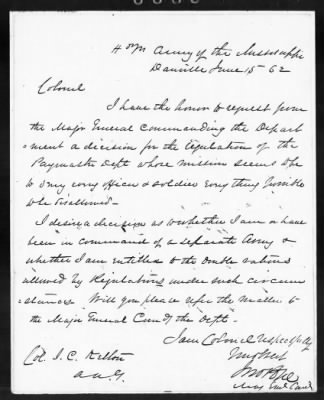 Hdqrs Army of the Mississippi
Danville June 15 62
Colonel
I have the honor to request from
the Major General Commanding the Depart
ment a decision for the regulation of the
Paymasters Dept whose mission seems to be
to deny every officer & soldier every thing possible
to be disallowed -
I desire a decision as to whether I am or have
been in command of a separate Army &
whether I am entitled to the double rations
allowed by Regulations under such circum
stances. Will you please refer the matter to
the Major General Comdg the Dept.
I am Colonel respectfully
Jno Pope
Maj Genl Comd
Col. J. C. Kelton
A.A.G.